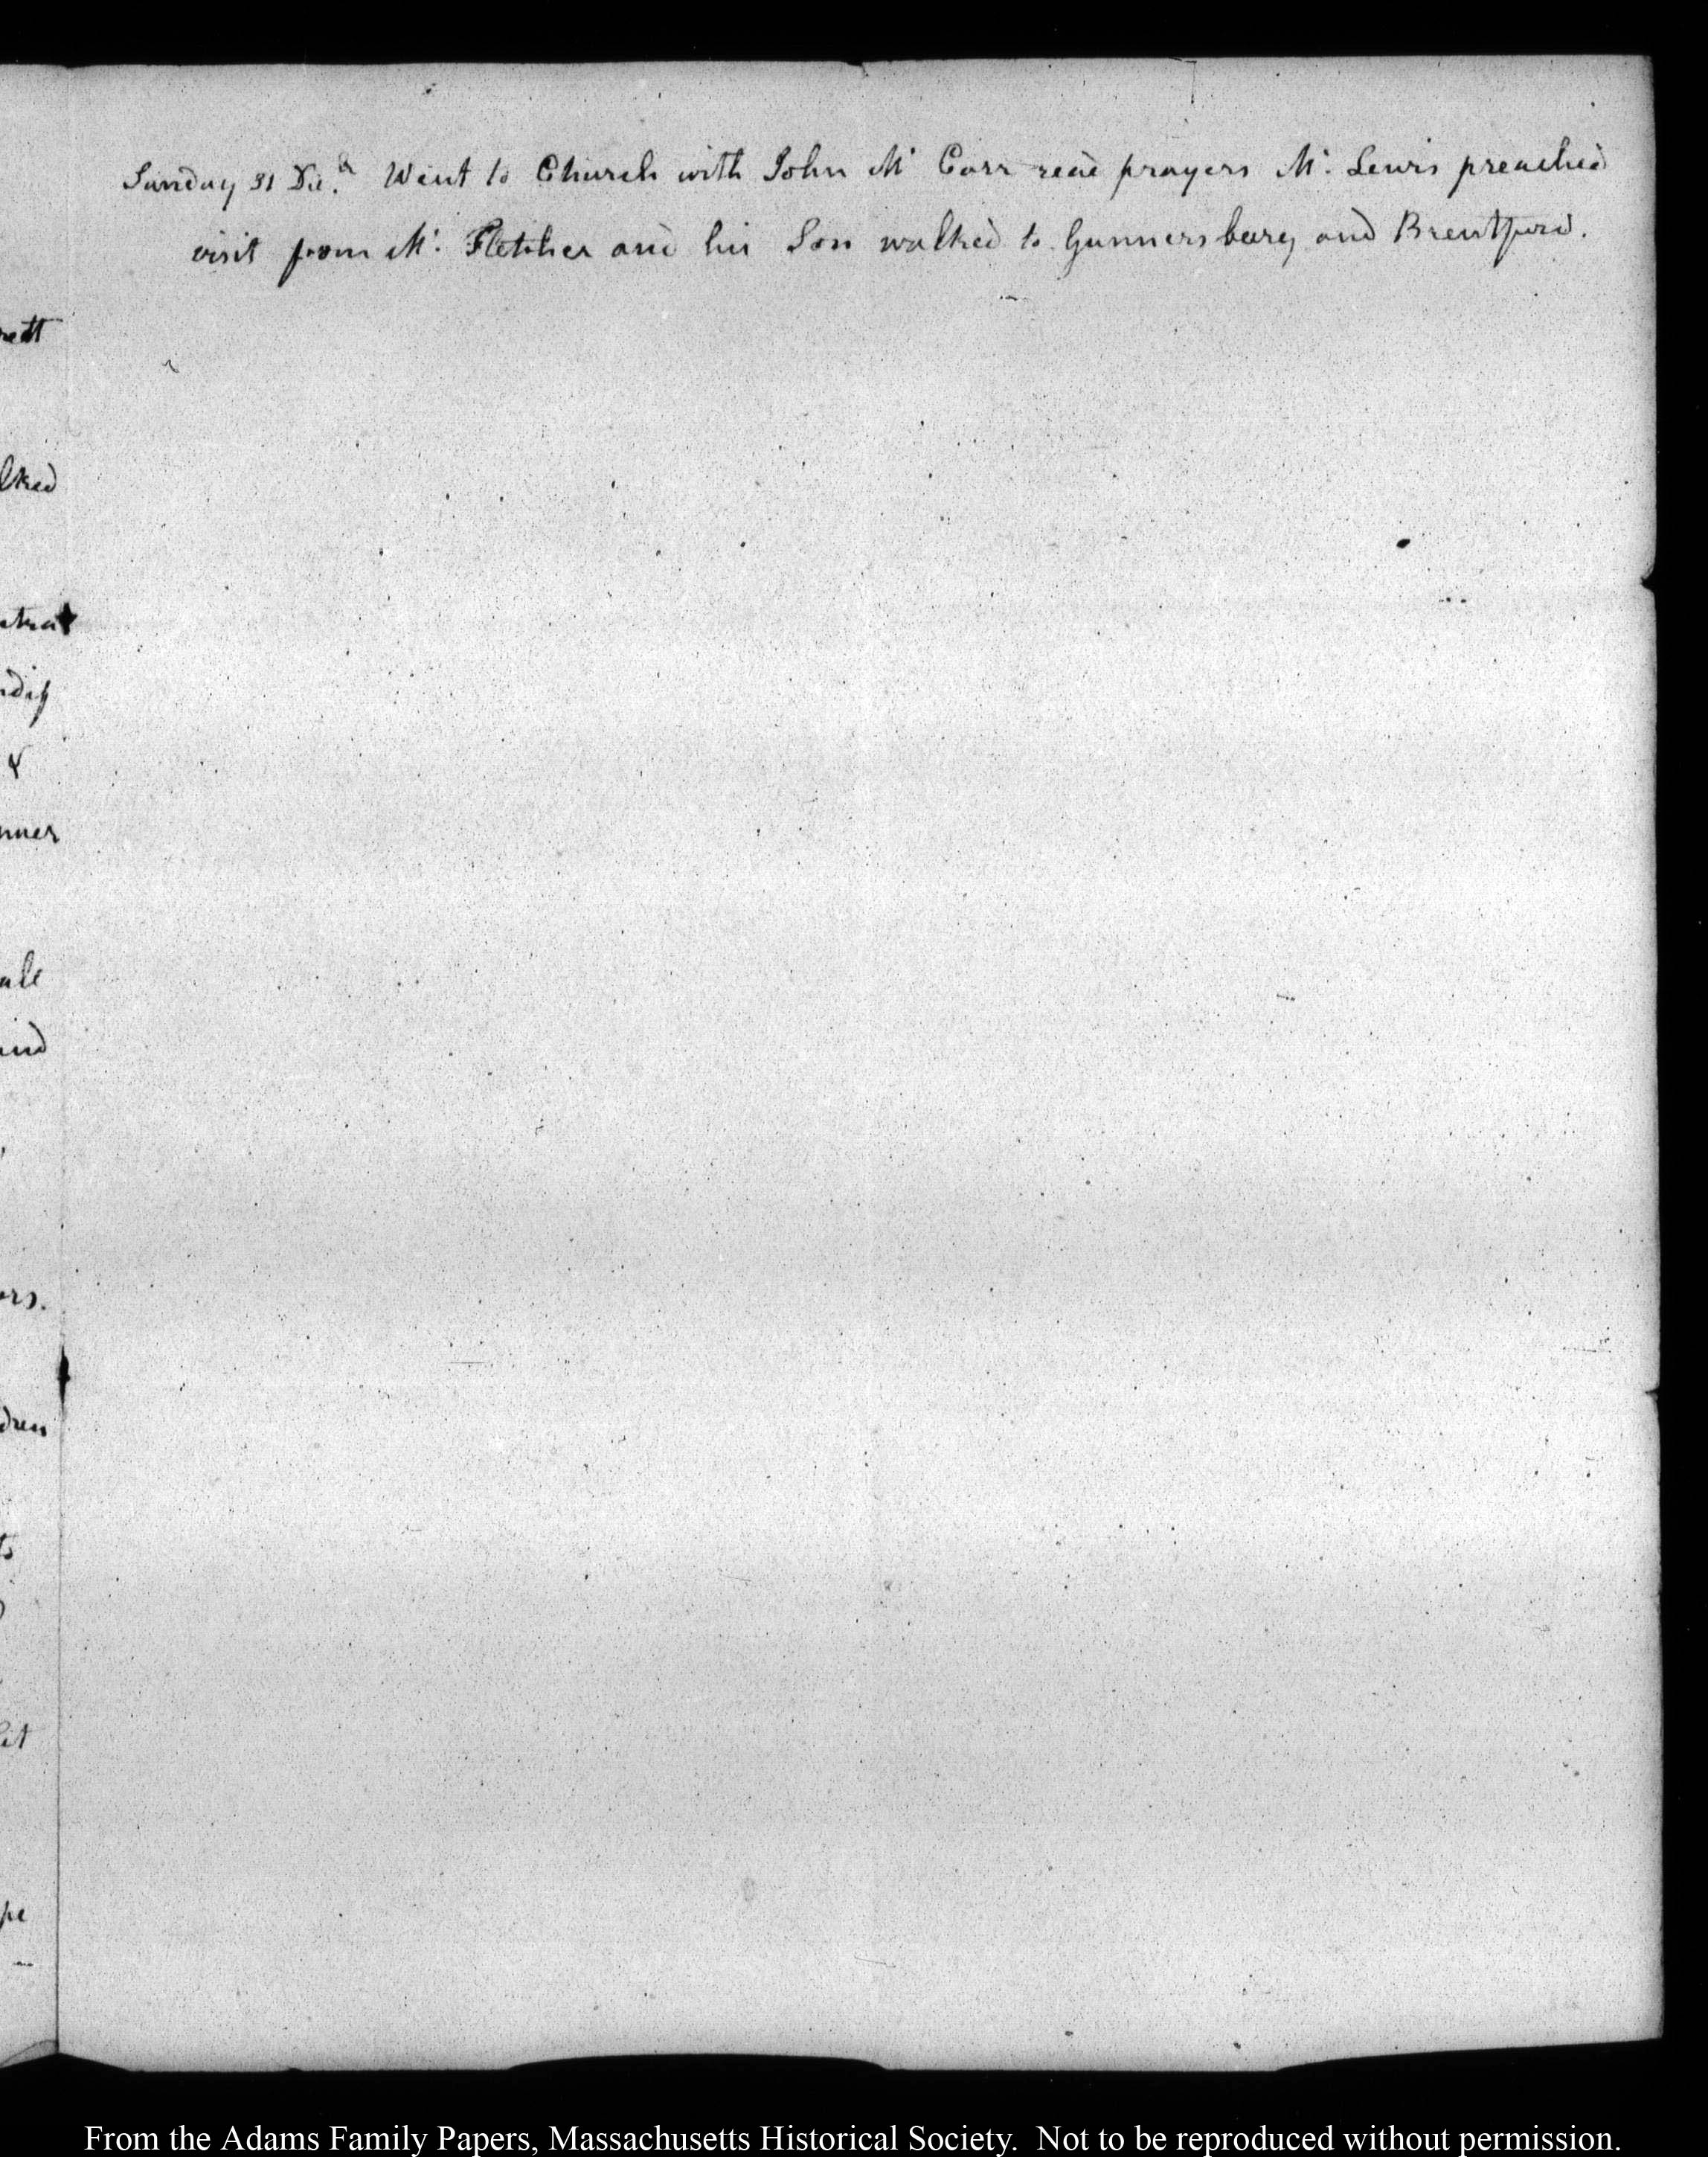 Sunday 31 Dec.r Went to Church with John Mr Carr read prayers Mr. Lewis preached
visit from Mr. Fletcher and his Son walked to Gunnersbury and Brentford.
nett
lked
&
nner
ale
and
ors.
dren
ts
it
pe
From the Adams Family Papers, Massachusetts Historical Society. Not to be reproduced without permission.